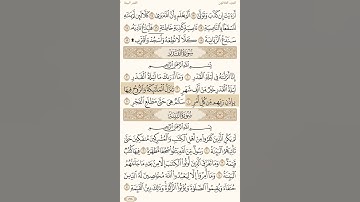 أَرَءَيْتَ إِن كَذَّبَ وَتَوَلَّىٰ ۝١٣ أَلَمْ يَعْلَم بِأَنَّ ٱللَّهَ يَرَىٰ ۝١٤ كَلَّا لَئِن لَّمْ يَنتَهِ
لَنَسْفَعًۢا بِٱلنَّاصِيَةِ ۝١٥ نَاصِيَةٍ كَـٰذِبَةٍ خَاطِئَةٍ ۝١٦ فَلْيَدْعُ نَادِيَهُۥ ۝١٧
سَنَدْعُ ٱلزَّبَانِيَةَ ۝١٨ كَلَّا لَا تُطِعْهُ وَٱسْجُدْ وَٱقْتَرِب ۩ ۝١٩
سُورَةُ القَدْرِ
بِسْمِ ٱللَّهِ ٱلرَّحْمَـٰنِ ٱلرَّحِيمِ
إِنَّآ أَنزَلْنَـٰهُ فِى لَيْلَةِ ٱلْقَدْرِ ۝١ وَمَآ أَدْرَىٰكَ مَا لَيْلَةُ ٱلْقَدْرِ ۝٢
لَيْلَةُ ٱلْقَدْرِ خَيْرٌ مِّنْ أَلْفِ شَهْرٍ ۝٣ تَنَزَّلُ ٱلْمَلَـٰٓئِكَةُ وَٱلرُّوحُ فِيهَا
بِإِذْنِ رَبِّهِم مِّن كُلِّ أَمْرٍ ۝٤ سَلَـٰمٌ هِىَ حَتَّىٰ مَطْلَعِ ٱلْفَجْرِ ۝٥
سُورَةُ البَيِّنَةِ
بِسْمِ ٱللَّهِ ٱلرَّحْمَـٰنِ ٱلرَّحِيمِ
لَمْ يَكُنِ ٱلَّذِينَ كَفَرُوا۟ مِنْ أَهْلِ ٱلْكِتَـٰبِ وَٱلْمُشْرِكِينَ مُنفَكِّينَ حَتَّىٰ تَأْتِيَهُمُ
ٱلْبَيِّنَةُ ۝١ رَسُولٌ مِّنَ ٱللَّهِ يَتْلُوا۟ صُحُفًا مُّطَهَّرَةً ۝٢ فِيهَا كُتُبٌ
قَيِّمَةٌ ۝٣ وَمَا تَفَرَّقَ ٱلَّذِينَ أُوتُوا۟ ٱلْكِتَـٰبَ إِلَّا مِنۢ بَعْدِ مَا جَآءَتْهُمُ
ٱلْبَيِّنَةُ ۝٤ وَمَآ أُمِرُوٓا۟ إِلَّا لِيَعْبُدُوا۟ ٱللَّهَ مُخْلِصِينَ لَهُ ٱلدِّينَ
حُنَفَآءَ وَيُقِيمُوا۟ ٱلصَّلَوٰةَ وَيُؤْتُوا۟ ٱلزَّكَوٰةَ وَذَٰلِكَ دِينُ ٱلْقَيِّمَةِ ۝٥